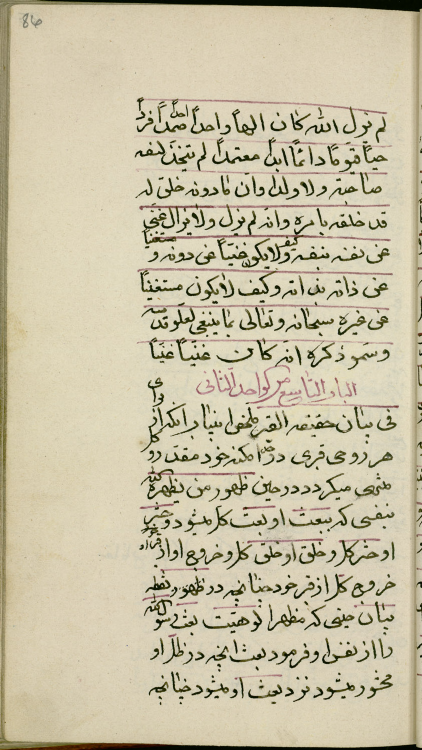 86
لم یزل الله کان الهاً واحداً احداً صمداً فرداً
حیاً قیوماً دائماً ابداً معتمداً لم یتخذ لنفسه
صاحبة ولا ولداً وان مادونه خلق له
قد خلقه بامره وانه لم یزل ولا یزال غنی
عن نفسه بنفسه ولایکون غنیاً عن دونه و مستغنیاً
عن ذاته بذاته وکیف لایکون مستغنیاً
عن غیره سبحانه وتعالی عما ینبغی لعلو قدسه
وسمو ذکره انه کان غنیاً غنیاً
الباب التاسع من الواحد الثانی
فی بیان حقیقه القبر ملخص این باب آنکه از برای
هر روحی قبری در حد امکنه خود مقدر و کل
منتهی میگردد در حین ظهور من یظهره الله
بنفسی که ببعث او بعث کل میشود و حشر
او حشر کل و خلق او خلق کل و خروج او از قبر او
خروج کل از قبر خود چنانچه در ظهور نقطه
بیان حینی که مظهر الوهیت بعث رسول الله
را از نفس او فرمود بعث آنچه در ظل او
محشور میشود نزد بعث او میشود چنانچه